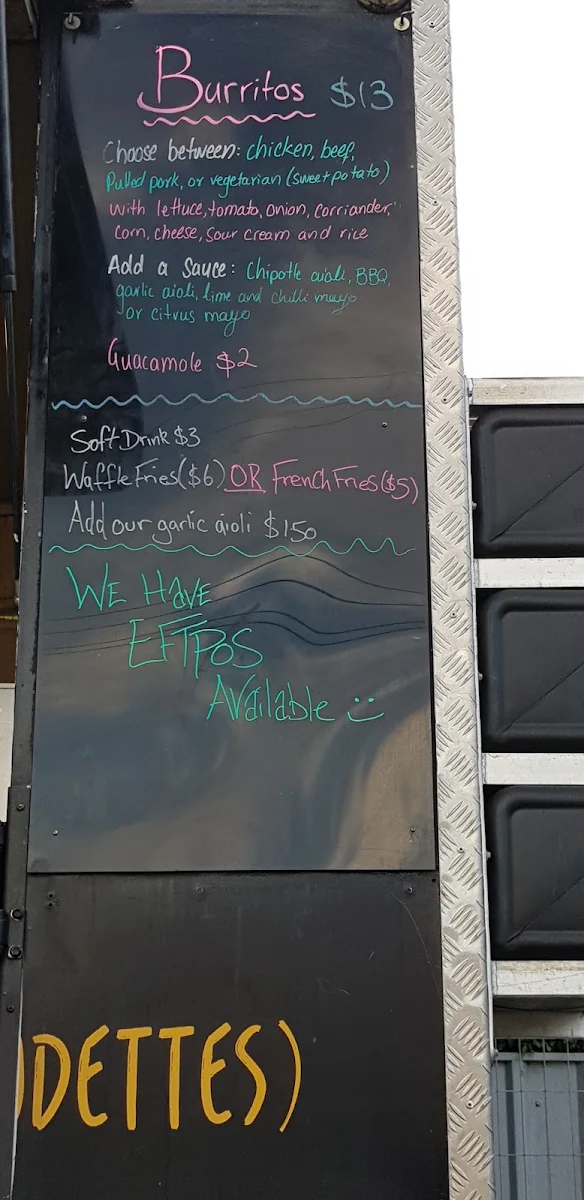 Burritos $13
Choose between: chicken, beef,
Pulled pork, or vegetarian (sweet potato)
with lettuce, tomato, onion, corriander,
corn, cheese, sour cream and rice
Add a Sauce: Chipotle aioli, BBQ,
garlic aioli, lime and chilli mayo
or citrus mayo
Guacamole $2
Soft Drink $3
Waffle Fries ($6) OR French Fries ($5)
Add our garlic aioli $150
WE HAVE
EFTPOS
AVailable :)
DETTES)